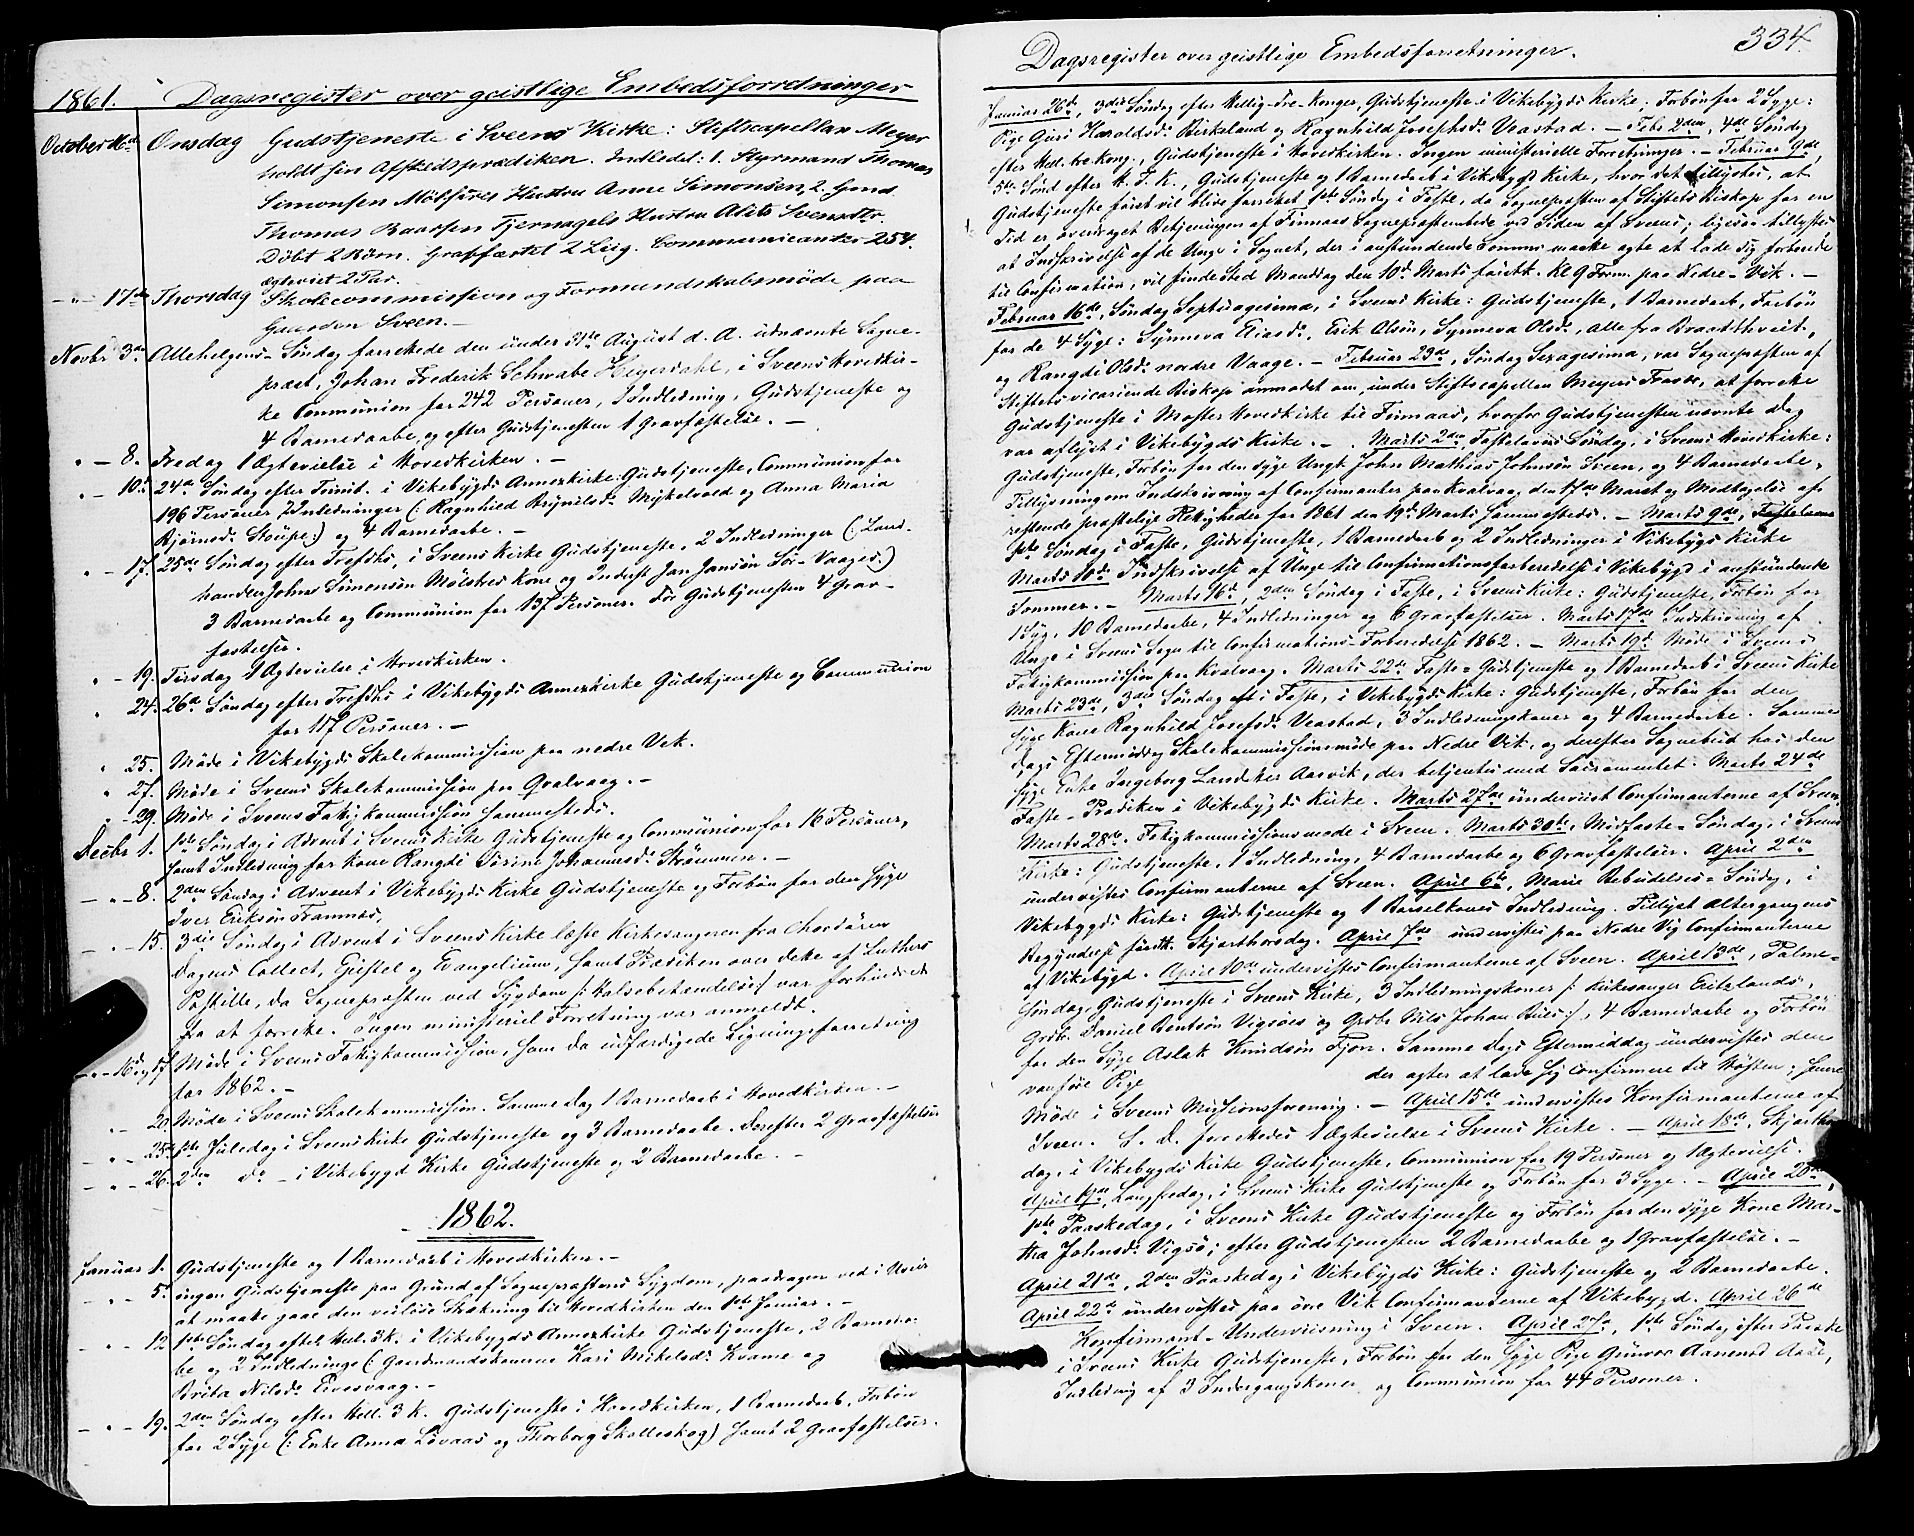 1861. Dagsregister over geistlige Embedsforretninger
October 16de Onsdag Gudstjeneste i Sveens Kirke: Stiftscapellan Meyer
holdt sin Afskedsprædiken. Indledet: 1. Styrmand Thomas
Simonsen Mølstres Hustru Anne Simonsen, 2. Gmd.
Thomas Baarsen Tjernagels Hustru Alits Svensdtr.
Døbt 2 Børn. Gravfæstet 2 Liig. Communicanter 254.
Egteviet 2 Par.
— " — 17de Thorsdag Skolecommission og Formundskabsmøde paa
Gaarden Sveen. —
Novbr 3die Allehelgens-Søndag forrettede den under 31te August d. A. udnævnte Sogne-
præst, Johan Frederik Schwabe Heyerdahl, i Sveens Hovedkir-
ke Communion for 242 Personer, 1 Indledning, Gudstjeneste og
4 Barnedaabe, og efter Gudstjenesten 1 Gravfæstelse. —
" — 8. Fredag 1 Ægtevielse i Hovedkirken. —
" — 10. 24de Søndag efter Trinit. i Vikebygds Annexkirke: Gudstjeneste, Communion for
196 Personer, 2 Indledninger (: Ragnhild Brynilsdr. Mykelvold og Anna Maria
Bjørnsdr. Støupe:) og 4 Barnedaabe. —
" — 17. 25de Søndag efter Trefdhs, i Sveens Kirke Gudstjeneste, 2 Indledninger (: Land-
handler Johns Simonsøn Mølstres Kone og Inderst Jan Jansøn Sør-Vaages:)
3 Barnedaabe og Communion for 137 Personer. Før Gudstjenesten 4 Grav-
fæstelser.
" — 19. Tirsdag 1 Ægtevielse i Hovedkirken.
" 24. 26de Søndag efter Trefdhs i Vikebygds Annexkirke Gudstjeneste og Communion
for 117 Personer. —
" 25. Møde i Vikebygds Skolekommission paa nedre Vik.
" 27. Møde i Sveens Skolekommission paa Qvalvaag. —
" 29. Møde i Sveens Fattigkommission sammesteds.
Decbr 1. 1ste Søndag i Advent i Sveens Kirke Gudstjeneste og Communion for 16 Personer,
samt Indledning for Kone Rangdi Serine Johannesdr. Strømmen. —
— " — 8. 2den Søndag i Advent i Vikebygds Kirke Gudstjeneste og Forbøn for den syge
Iver Eriksøn Framnæs.
— " — 15. 3die Søndag i Advent i Sveens Kirke læste Kirkesangeren fra Chordøren
Dagens Collect, Epistel og Evangelium, samt Prædiken over dette af Luthers
Postille, da Sognepræsten ved Sygdom /: Halsebetændelse:/ var forhindret
fra at forrette. Ingen ministeriel Forretning var anmeldt.
— " — 16 og 17 Møde i Sveens Fattigkommission, som da udfærdigede Ligningsforretning
for 1862. —
" — 20. Møde i Sveens Skolekommission. Samme Dag 1 Barnedaab i Hovedkirken. —
— " — 25de 1ste Juledag i Sveens Kirke Gudstjeneste og 3 Barnedaabe. Derefter 2 Gravfæstelser
— " — 26. 2den do — i Vikebygd Kirke Gudstjeneste og 2 Barnedaabe. —
1862.
Januar 1. Gudstjeneste og 1 Barnedaab i Hovedkirken. —
— " — 5. ingen Gudstjeneste paa Grund af Sognepræstens Sygdom, paadragen ved i Uveir
at maatte gaae den veiløse Strækning til Hovedkirken den 1ste Januar. —
— " — 12. 1ste Søndag efter Hel. 3 K. i Vikebygds Annexkirke Gudstjeneste, 2 Barnedaa-
be og 2 Indledninge (: Gaardmandskonerne Kari Mikelsdr. Kvame og
Brita Nilsdr. Eivesvaag. —
— " — 19. 2den Søndag efter Hell. 3 K. Gudstjeneste i Hovedkirken, 1 Barnedaab, Forbøn
for 2 Syge (: Enke Anna Løvaas og Thorborg Skolleskog) samt 2 Gravfæstelser.
Dagsregister over geistlige Embedsforretninger. 334.
Januar 26de, 3die Søndag efter Hellig-Tre-Konger, Gudstjeneste i Vikebygds Kirke; Forbøn for 2 Syge:
Pige Guri Haroldsdr. Birkeland og Ragnhild Josephsdr. Veastad. — Febr. 2den, 4de Søndag
efter Hell. tre Kong., Gudstjeneste i Hovedkirken. Ingen ministerielle Forretninger. — Februar 9de,
5te Sønd. efter H. T. K., Gudstjeneste og 1 Barnedaab i Vikebygd Kirke, hvor det tillystes, at
Gudstjeneste først vil blive forrettet 1ste Søndag i Faste, da Sognepræsten af Stiftets Biskop for en
Tid er overdraget Betjeningen af Finnaas Sognepræsteembede ved Siden af Sveens; ligesaa tillystes
at Indskrivelse af de Unge i Sognet, der i anstundende Sommer maatte agte at lade sig forberede
til Confirmation, vil finde Sted Mandag den 10de Marts førstk. Kl. 9 Form. paa Nedre-Vik. —
Februar 16de, Søndag Septuagesima, i Sveens Kirke: Gudstjeneste, 1 Barnedaab, Forbøn
for de 4 Syge: Synneva Eliasdr., Erik Olsøn, Synneva Olsdr., alle fra Braadthveit,
og Rangdi Olsdr. nordre Vaage. — Februar 23de, Søndag Sexagesima, var Sognepræsten af
Stiftets vicariende Biskop anmodet om, under Stiftscapellan Meyers Fravær, at forrette
Gudstjeneste i Mosters Hovedkirke til Finnaas, hvorfor Gudstjenesten nævnte Dag
var aflyst i Vikebygds Kirke. — Marts 2den Fastelavns Søndag, i Sveens Hovedkirke:
Gudstjeneste, Forbøn for den syge Ungk. John Mathias Johnsøn Sveen, og 4 Barnedaabe,
Tillysning om Indskrivning af Confirmanter paa Kvalvaag den 17de Marts og Modtagelse af
restende præstelige Rettigheder for 1861 den 19de Marts sammesteds. — Marts 9de, Fastelavns
1ste Søndag i Faste, Gudstjeneste, 1 Barnedaab og 2 Indledninger i Vikebygds Kirke
Marts 10de Indskrivelse af Unge til Confirmationsforberedelse i Vikebygd i anstundende
Sommer. — Marts 16de, 2den Søndag i Faste, i Sveens Kirke: Gudstjeneste, Forbøn for
1 Syg, 10 Barnedaabe, 4 Indledninger og 6 Gravfæstelser. Marts 17de Indskrivning af
Unge i Sveens Sogn til Confirmations-Forberedelse 1862. — Marts 19de Møde i Sveens
Fattigkommission paa Kvalvaag. Marts 22de Faste-Gudstjeneste og 1 Barnedaab i Sveens Kirke
Marts 23de, 3die Søndag i Faste, i Vikebygds Kirke: Gudstjeneste, Forbøn for den
syge Kone Ragnhild Josefsdr. Veastad, 3 Indledningskoner og 4 Barnedaabe. Samme
Dags Eftermiddag Skolekommissionsmøde paa Nedre Vik, og derefter Sognebud hos den
syge Enke Ingeborg Aasvik, der betjentes med Sacramentet. Marts 24de
Faste-Prædiken i Vikebygds Kirke. Marts 27de underviist Confirmanterne af Sveen.
Marts 28de. Fattigkommissionsmøde i Sveen. Marts 30te, Midfaste-Søndag, i Sveens
Kirke: Gudstjeneste, 1 Indledning, 4 Barnedaabe og 6 Gravfæstelser. April 2den
undervistes Confirmanterne af Sveen. April 6te, Mariæ Bebudelses-Søndag, i
Vikebygds Kirke: Gudstjeneste og 1 Barselkones Indledning. Tillyst Altergangens
Begyndelse førstk. Skjærthorsdag. April 7de undervistes paa Nedre Vig Confirmanterne
af Vikebygd. April 10de undervistes Confirmanterne af Sveen. April 13de, Palme-
Søndag, Gudstjeneste i Sveens Kirke, 3 Indledningskoner /: Kirkesanger Eritzlands,
Grdb. Daniel Bentsøn Vigsøes og Grdbr. Nils Johan Buls:/, 4 Barnedaabe og Forbøn
for den Syge Aslak Knudsøn Fjon. Samme Dags Eftermiddag undervistes den
vanføre Pige der agter at lade sig confirmere til Høsten; senere
Møde i Sveens Missionsforening. — April 15de undervistes Konfirmanterne af
Sveen. S. D. forrettedes 1 Ægtevielse i Sveens Kirke. — April 18de, Skjærthors-
dag, i Vikebygds Kirke Gudstjeneste, Communion for 19 Personer og 1 Ægtevielse.
April 19de, Langfredag, i Sveens Kirke Gudstjeneste og Forbøn for 3 Syge. — April 20de,
1ste Paaskedag, i Sveens Kirke Gudstjeneste og Forbøn for den syge Kone Mar-
tha Johnsdr. Vigsø; efter Gudstjenesten 2 Barnedaabe og 1 Gravfæstelse. —
April 21de, 2den Paaskedag i Vikebygds Kirke: Gudstjeneste og 2 Barnedaabe.
April 22de undervistes paa øvre Vik Confirmanterne af Vikebygd. April 26de
Konfirmant-Underviisning i Sveen. April 27de, 1ste Søndag efter Paaske
i Sveens Kirke Gudstjeneste, Forbøn for den Syge Pige Gunvor Aanensd.,
Indledning af 3 Indergangskoner og Communion for 44 Personer.